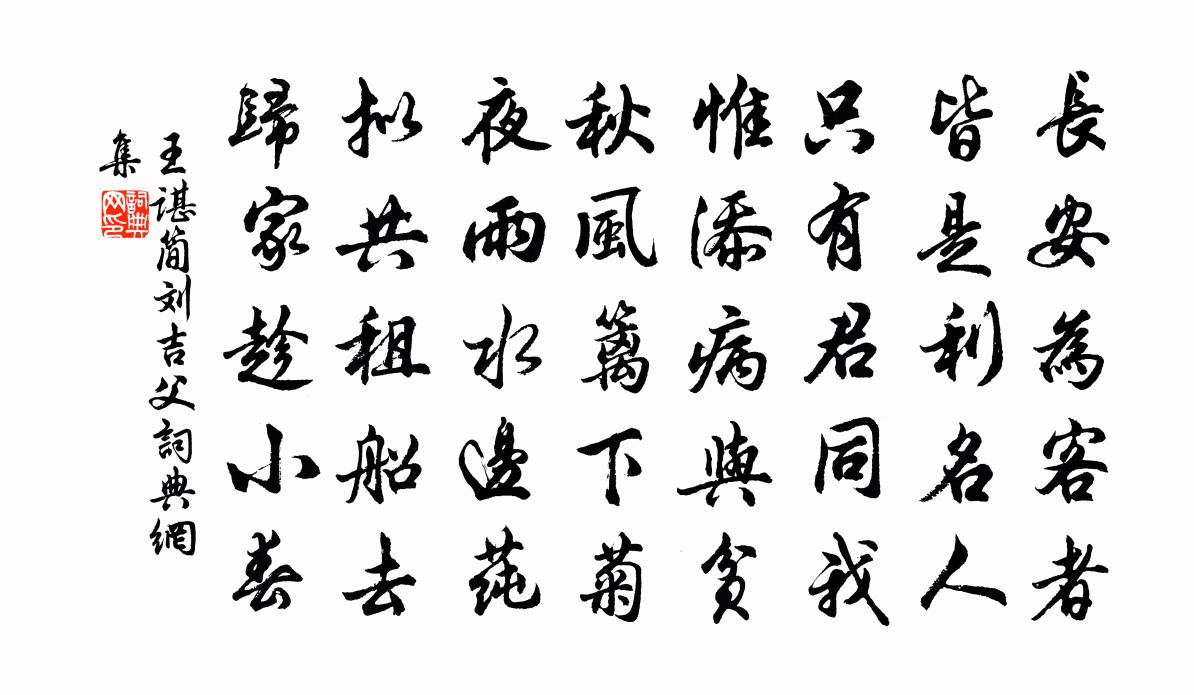 長安為客者
皆是利名人
只有君同我
惟添病與貧
秋風籬下菊
夜雨水邊蒓
拟共租船去
歸家趁小春
王諶简刘吉父詞典網
集
詞典
网印